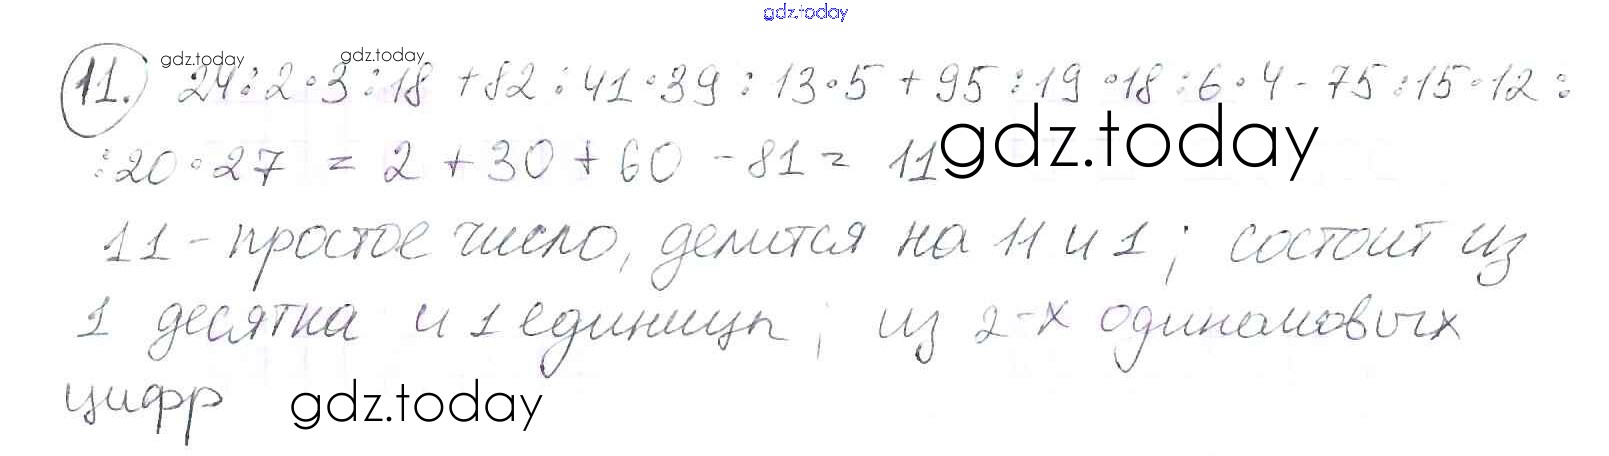 gdz.today
11. 24:2·3:18 + 82:41·39:13·5 + 95:19·18:6·4 - 75:15·12:
gdz.today gdz.today
gdz.today
:20·27 = 2 + 30 + 60 - 81 = 11
11 - простое число, делится на 11 и 1; состоит из
1 десятка и 1 единицы; из 2-х одинаковых
цифр
gdz.today